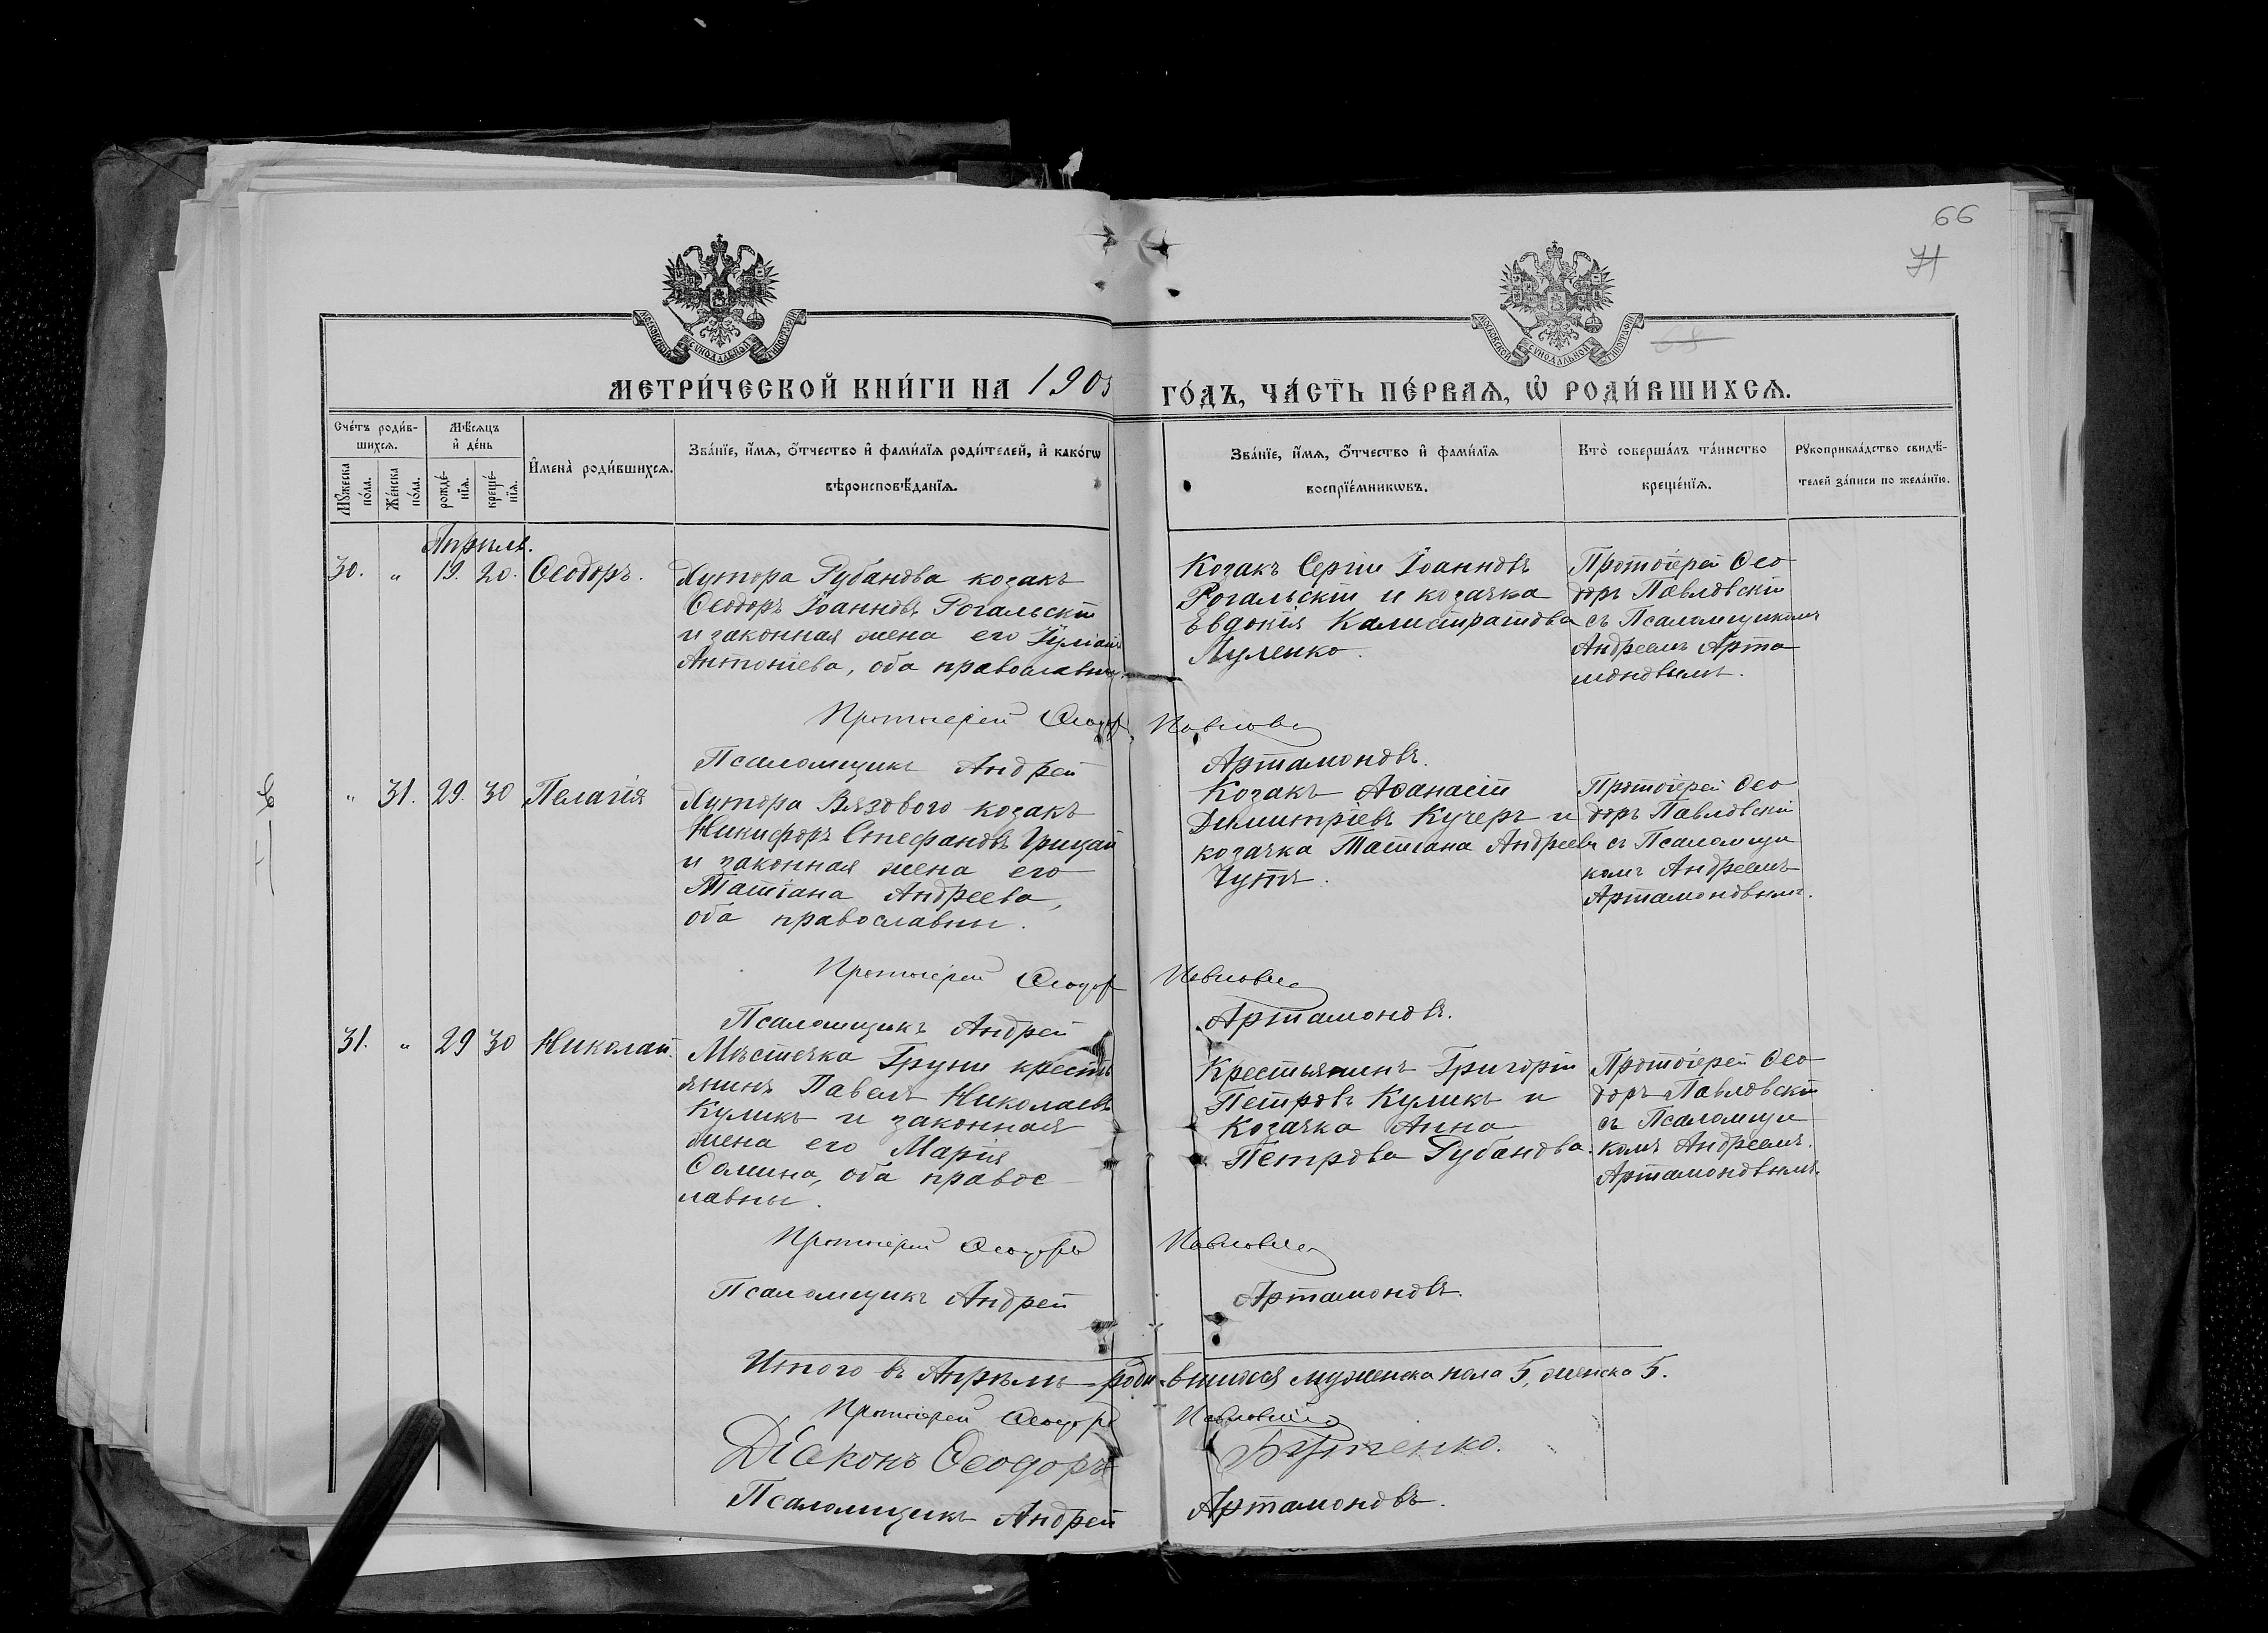 66
71
МОСКОВСКОЙ СѴНОДАЛЬНОЙ ТИПОГРАФІИ
МОСКОВСКОЙ СѴНОДАЛЬНОЙ ТИПОГРАФІИ
МЕТРИ́ЧЕСКОЙ КНИ́ГИ НА 1905 ГО́ДЪ, ЧА́СТЬ ПЕ́РВАѦ, Ѡ҆ РОДИ́ВШИХСѦ.
Сче́тъ роди́в-
шихсѧ.
Мꙋ́жеска по́ла.
Же́нска по́ла.
Мѣ́сѧцъ
и҆ де́нь
рожде́-
нїѧ.
креще́-
нїѧ.
И҆мена̀ роди́вшихсѧ.
Зва́нїе, и҆́мѧ, ѻ҆́тчество и҆ фами́лїѧ роди́телей, и҆ како́гѡ
вѣроисповѣ́данїѧ.
Зва́нїе, и҆́мѧ, ѻ҆́тчество и҆ фами́лїѧ
воспрїе́мникѡвъ.
Кто̀ соверша́лъ та́инство
креще́нїѧ.
Рꙋкоприкла́дство свидѣ́-
телей за́писи по жела́нїю.
Апрѣль.
30. " 19. 20. Ѳеодоръ.
Хутора Рубанова козакъ
Ѳеодоръ Іоанновъ Рогальскій
и законная жена его Іуліанія
Антоніева, оба православны.
Козакъ Сергій Іоанновъ
Рогальскій и козачка
Евдокія Калистратова
Луленко.
Протоіерей Ѳео
доръ Павловскій
съ Псаломщикомъ
Андреемъ Арта
моновымъ.
Протоіерей Ѳеодоръ Павловскій
Псаломщикъ Андрей Артамоновъ.
" 31. 29. 30 Пелагія
Хутора Вязового козакъ
Никифоръ Стефановъ Грицай
и законная жена его
Татіана Андреева,
оба православны.
Козакъ Аѳанасій
Димитріевъ Кучеръ и
козачка Татіана Андреева
Чупъ.
Протоіерей Ѳео
доръ Павловскій
съ Псаломщи
комъ Андреемъ
Артамоновымъ.
Протоіерей Ѳеодоръ Павловскій
Псаломщикъ Андрей Артамоновъ.
31. " 29 30 Николай.
Мѣстечка Груни кресть
янинъ Павелъ Николаевъ
Куликъ и законная
жена его Марія
Ѳомина, оба правос
лавны.
Крестьянинъ Григорій
Петровъ Куликъ и
Козачка Анна
Петрова Рубанова.
Протоіерей Ѳео
доръ Павловскій
съ Псаломщи
комъ Андреемъ.
Артамоновымъ.
Протоіерей Ѳеодоръ Павловскій
Псаломщикъ Андрей Артамоновъ.
Итого въ Апрѣлѣ родившихся мужеска пола 5, женска 5.
Протоіерей Ѳеодоръ Павловскій
Діаконъ Ѳеодоръ Бутенко.
Псаломщикъ Андрей Артамоновъ.